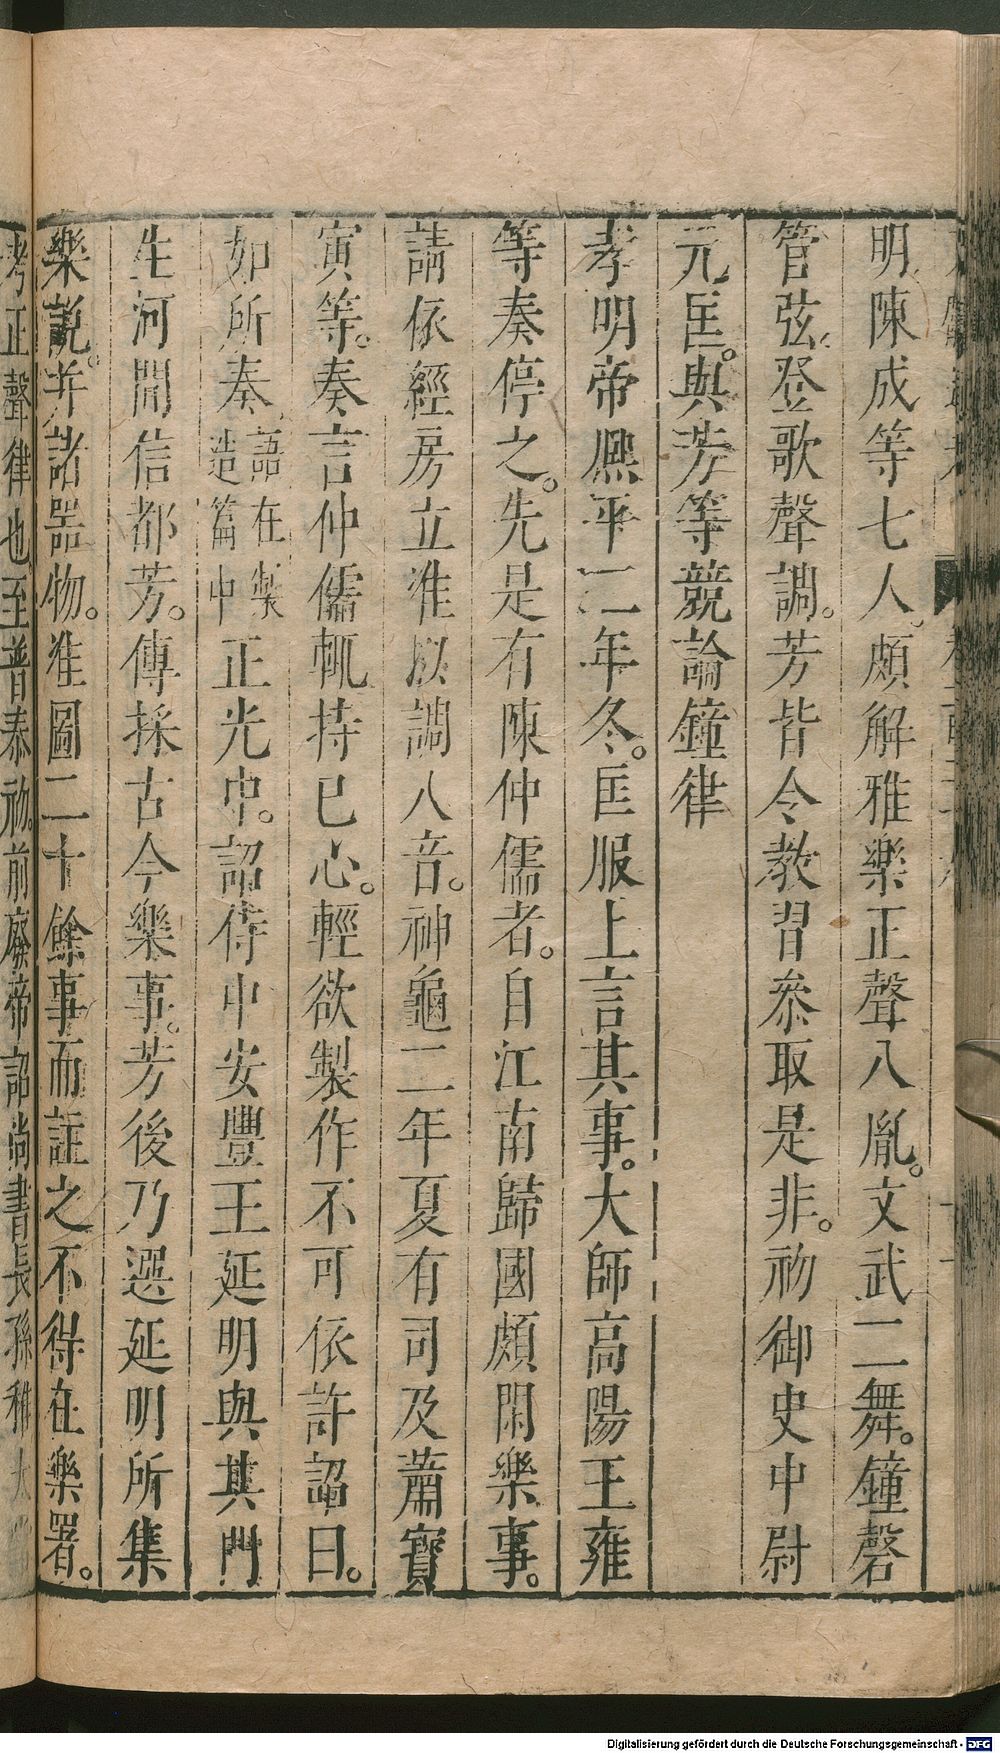 明陳成等七人頗解雅樂正聲八胤。文武二舞。鐘磬
管弦。登歌聲調。芳皆令教習參取是非。初御史中尉
元匡。與芳等競論鐘律
孝明帝熈平二年冬。匡服上言其事。大師高陽王雍
等奏停之。先是有陳仲儒者。自江南歸國頗閑樂事。
請依經房立准以調八音。神龜二年夏有司及蕭寳
寅等。奏言仲儒輒持已心。輕欲製作不可依許詔曰。
如所奏語在製造篇中正光中。詔侍中安豐王延明與其門
生河間信都芳。傳採古今樂事。芳後乃選延明所集
樂說。并諸器物。准圖二十餘事而註之不得在樂署。
考正聲律也至普泰初。前廢帝詔尚書長孫稚太
Digitalisierung gefördert durch die Deutsche Forschungsgemeinschaft - DFG